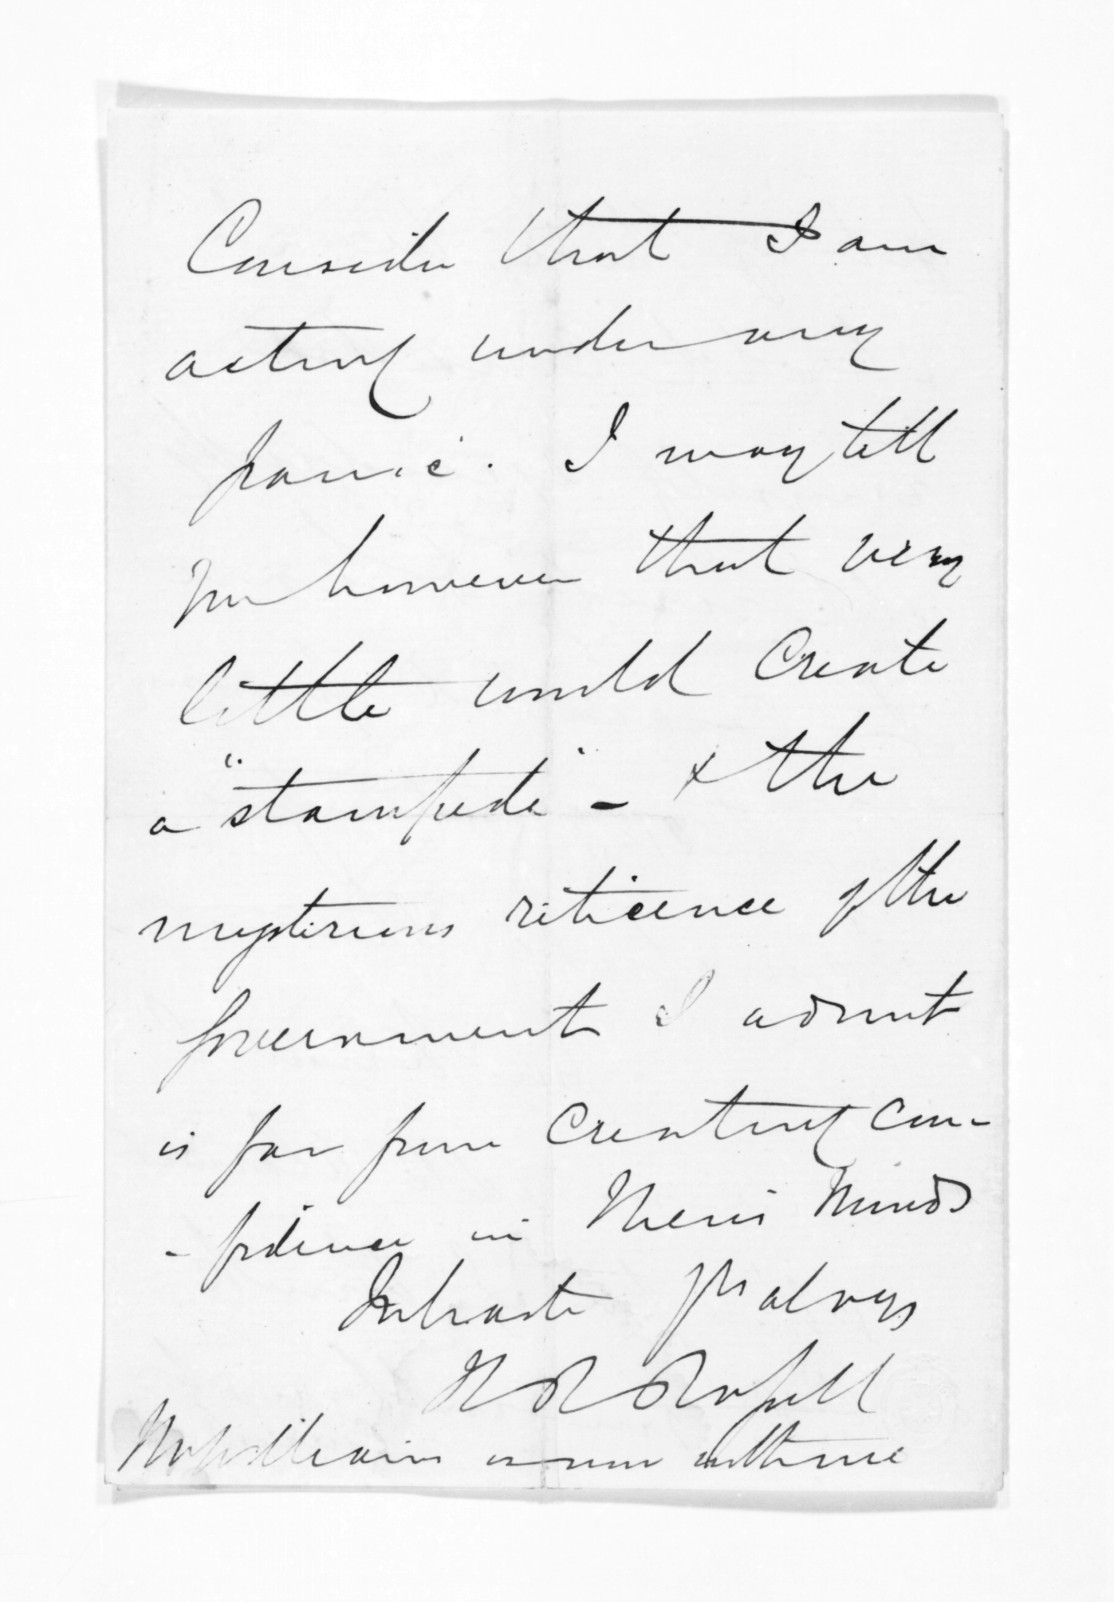 Consider that I am
acting under any
panic. I may tell
you however that very
little would create
a "stampede" - & the
mysterious reticence of the
Government I admit
is far from creating con-
-fidence in their minds
In haste yrs always
H R Russell
is now with me